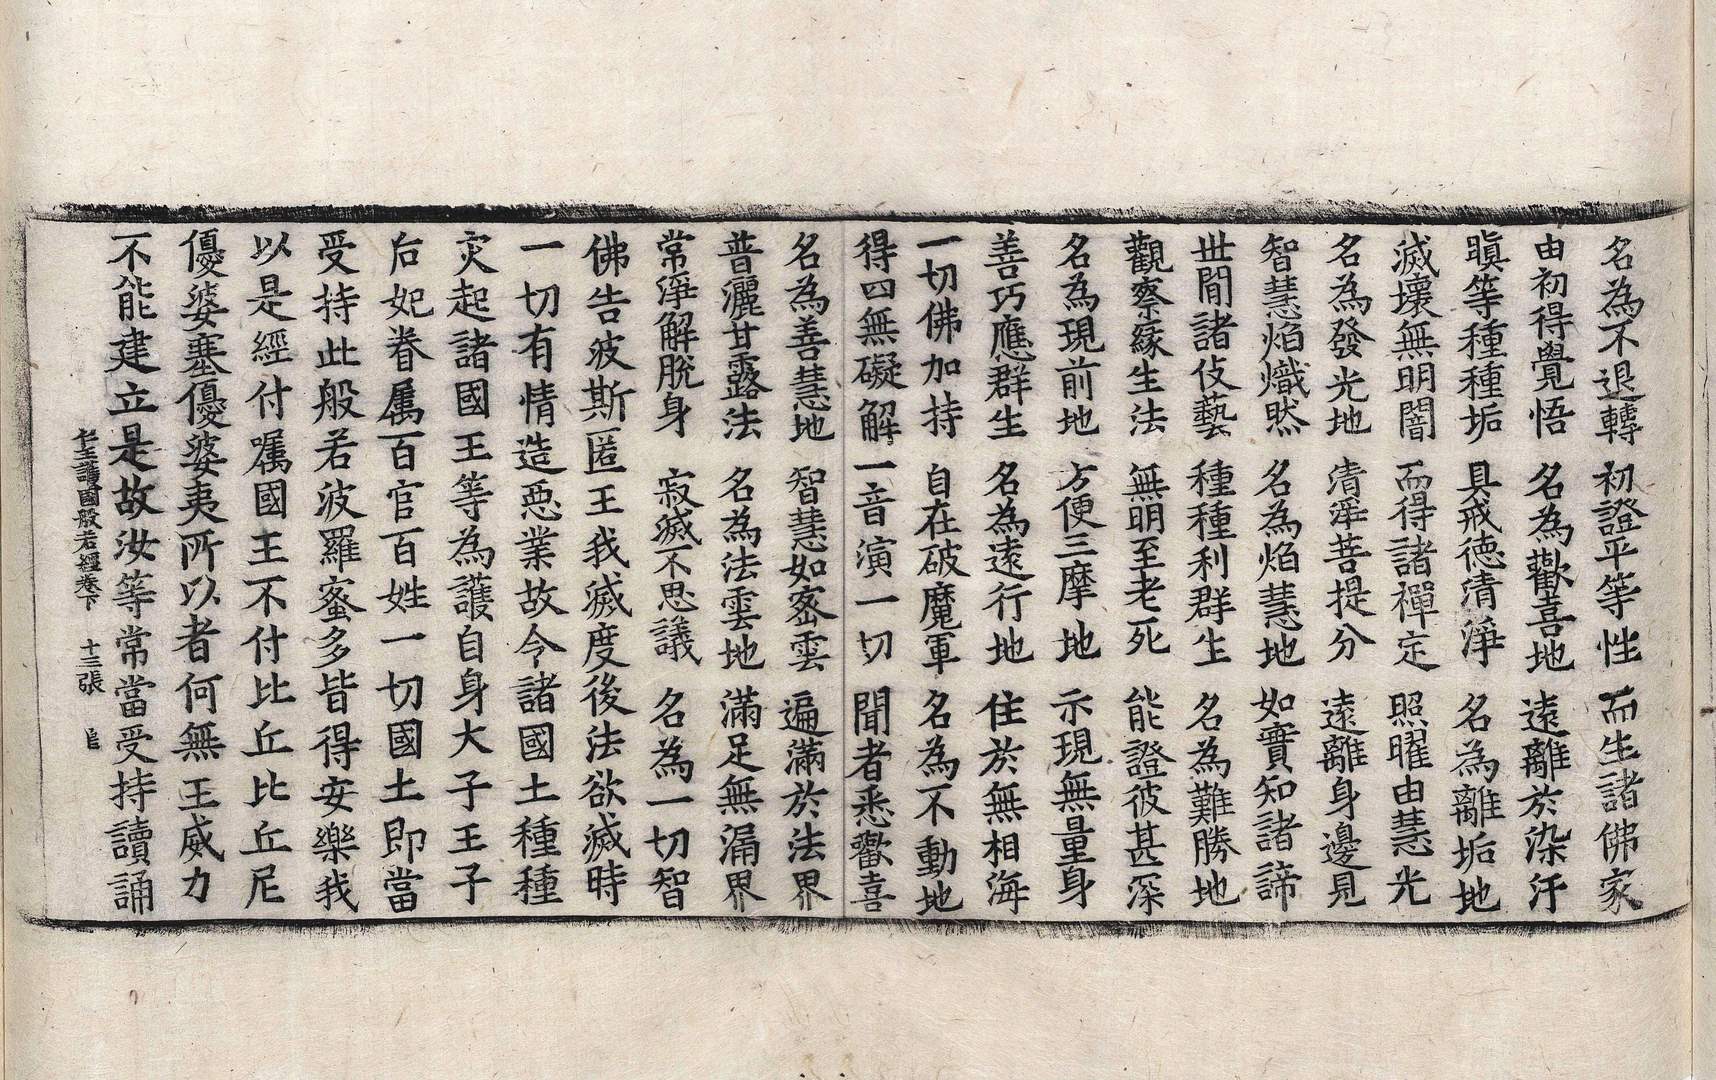 名為不退轉　初證平等性　而生諸佛家
由初得覺悟　名為歡喜地　遠離於染汙
瞋等種種垢　具戒德清淨　名為離垢地
滅壞無明闇　而得諸禪定　照曜由慧光
名為發光地　清淨菩提分　遠離身邊見
智慧焰熾然　名為焰慧地　如實知諸諦
世間諸伎藝　種種利群生　名為難勝地
觀察緣生法　無明至老死　能證彼甚深
名為現前地　方便三摩地　示現無量身
善巧應群生　名為遠行地　住於無相海
一切佛加持　自在破魔軍　名為不動地
得四無礙解　一音演一切　聞者悉歡喜
名為善慧地　智慧如密雲　遍滿於法界
普灑甘露法　名為法雲地　滿足無漏界
常淨解脫身　寂滅不思議　名為一切智
佛告波斯匿王我滅度後法欲滅時
一切有情造惡業故令諸國土種種
灾起諸國王等為護自身大子王子
后妃眷属百官百姓一切國土即當
受持此般若波羅蜜多皆得安樂我
以是經付囑國王不付比丘比丘尼
優婆塞優婆夷所以者何無王威力
不能建立是故汝等常當受持讀誦
仁王護國般若經卷下　十三張